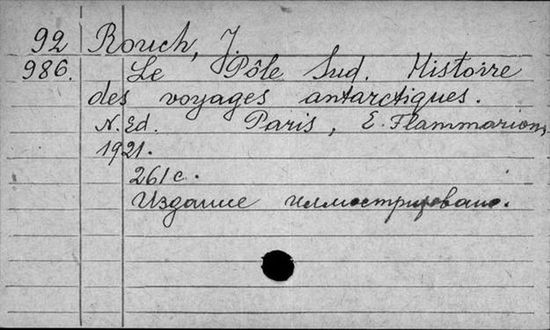 92 Rouch, J.
986. Le Pôle Sud. Histoire
des voyages antarctiques.
N. Ed. Paris, E. Flammarion,
1921.
261 с.
Издание иллюстрировано.